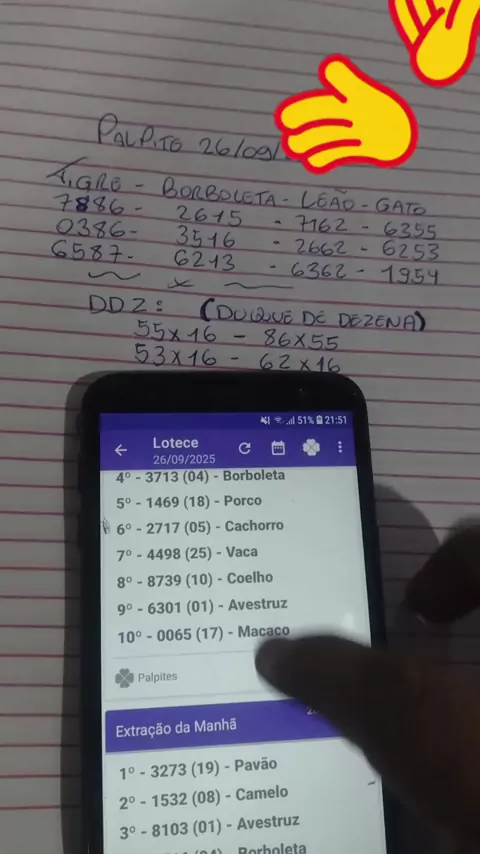 PALPITE 26/09/
TIGRE - BORBOLETA - LEÃO - GATO
7886 - 2615 - 7162 - 6355
0386 - 3516 - 2662 - 6253
6587 - 6213 - 6362 - 1954
x
DDZ: (DUQUE DE DEZENA)
55x16 - 86x55
53x16 - 62x16
51% 21:51
Lotece
26/09/2025
4º - 3713 (04) - Borboleta
5º - 1469 (18) - Porco
6º - 2717 (05) - Cachorro
7º - 4498 (25) - Vaca
8º - 8739 (10) - Coelho
9º - 6301 (01) - Avestruz
10º - 0065 (17) - Macaco
Palpites
Extração da Manhã
1º - 3273 (19) - Pavão
2º - 1532 (08) - Camelo
3º - 8103 (01) - Avestruz
Borboleta